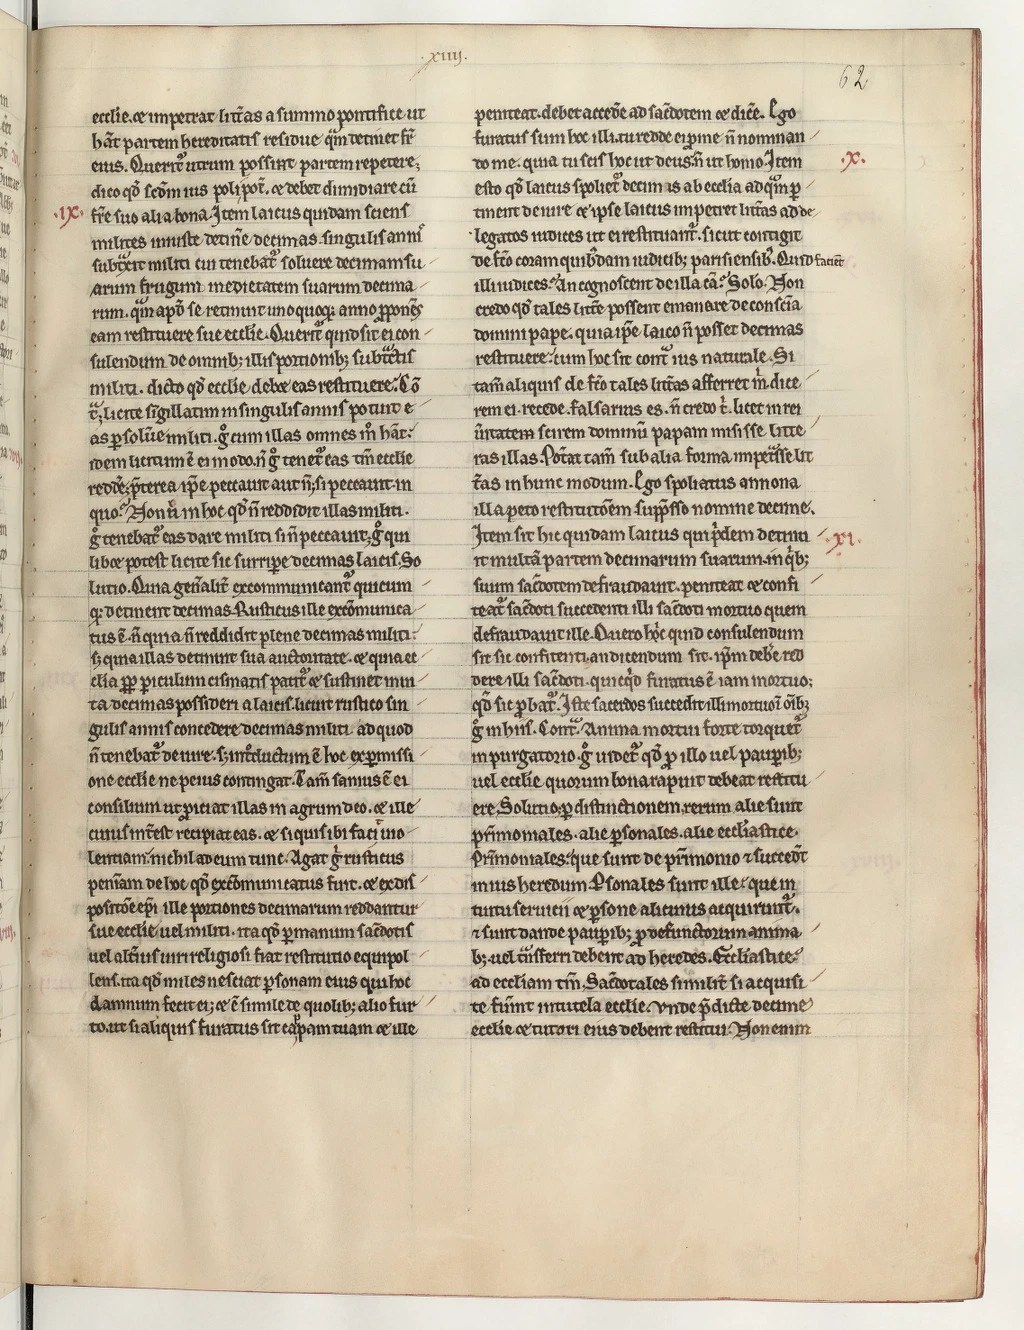 .xiiij.
62
ecclẽ. ⁊ impetrat litt̃as a summo pontifice ut
hãt partem hereditatis residue q̃m detinet fr̃
eius. Querit᷑ utrum possint partem repetere.
dico qđ scðm ius poli pot̃. ⁊ debet dimidiare cũ
.ix. fr̃e suo alia bona. Item laicus quidam sciens
milites iniuste detinẽ decimas. singulis annis
subt᷑xit militi cui tenebat᷑ soluere decimam su
arum frugum medietatem suarum decima
rum. q̃m apđ se retinuit unoquoq; anno ꝓponẽs
eam restituere sue ecclie. Querit᷑ quid sit ei con
sulendum de omnib; illis portionib; subt᷑ctis
militi. dicto qđ ecclie debet eas restituere. Cõ
t᷑. licite sigillatim in singulis annis potuit e
as ꝑsolũe militi. g̊ cum illas omnes m̊ hãt.
idem licitum ẽ ei modo. ñ g̊ tenet᷑ eas tm̃ ecclie
reddẽ. p̃terea ip̃e peccauit aut ñ. si peccauit in
quo. Non .n. in hoc qđ ñ reddidit illas militi.
g̊ tenebat᷑ eas dare militi si ñ peccauit. g̊ qui
libet potest licite sic surripe decimas laicis. So
lutio. Quia gen̾alit̃ excommunicant᷑ quicum
q; detinent decimas. Rusticus ille excõmunica
tus ẽ. ñ quia ñ reddidit plene decimas militi.
s; quia illas detinuit sua auctoritate. ⁊ quia ec
clia ꝓp̃ ꝑiculum cismatis patit᷑ ⁊ sustinet mul
ta decimas possideri a laicis. licuit rustico sin
gulis annis concedere decimas militi ad quod
ñ tenebat᷑ de iure. s; int̾ductum ẽ hoc ex ꝑmissi
one ecclie ne peius contingat. Tam̃ sanius ẽ ei
consilium ut ꝓiciat illas in agrum deo. ⁊ ille
cuius int̾est recipiat eas. ⁊ si quis ibi faciat uio
lentiam. nichil ad eum tunc. Agat g̊ rusticus
penĩam de hoc qđ excõmunicatus fuit. ⁊ ex dis
positõe ep̃i ille portiones decimarum reddantur
sue ecclie uel militi. ita qđ ꝑ manum sac̾dotis
uel alt̾ius uiri religiosi fiat restitutio equipol
lens. ita qđ miles nesciat ꝑsonam eius qui hoc
damnum fecit ei. ⁊ ẽ simile de quolib; alio fur
to. ut si aliquis furatus sit cappam tuam ⁊ ille
peniteat. debet accedẽ ad sac̾dotem ⁊ dicẽ. Ego
furatus sum hoc illi. tu redde ei ꝑ me ñ nominan
to me. quia tu scis hoc ut deus. ñ ut homo. Item
.x. esto qđ laicus spoliet᷑ decimis ab ecclia ad q̃m ꝑ
tinent de iure ⁊ ipse laicus impetret litt̃as ad de
legatos iudices ut ei restituant᷑. sicut contigit
de fc̃o coram quibđam iudicib; parisiensib;. Quid facient
illi iudices. An cognoscent de illa cã. Solo. Non
credo qđ tales litt̃e possent emanare de consciã
domini pape. quia ip̃e laico ñ posset decimas
restituere. cum hoc sit cont᷑ ius naturale. Si
tam̃ aliquis de fc̃o tales litt̃as afferret m̊ dice
rem ei. recede. falsarius es. ñ credo t̊. licet in rei
ũitatem scirem dominũ papam misisse litte
ras illas. Pot̾at tam̃ sub alia forma impet᷑sse lit
t̃as in hunc modum. Ego spoliatus annona
illa peto restitutiõem supp̃sso nomine decime.
.xi. Item sit hic quidam laicus qui p̾dem detinu
it multã partem decimarum suarum. in q̾b;
suum sac̾dotem defraudauit. peniteat ⁊ confi
teat᷑ sac̾doti succedenti illi sac̾doti mortuo quem
defraudauit ille. Quero h̊ic quid consulendum
sit sic confitenti. an dicendum sit. ip̃m debẽ red
dere illi sac̾doti. quicq̾d furatus ẽ iam mortuo;
qđ sic ꝓbat᷑. Iste sacerdos succedit illi mortuo in oĩb;
g̊ in hiis. Cont᷑. Anima mortui forte torquet᷑
in purgatorio. g̊ uidet᷑ qđ ꝑ illo uel pauꝑib;
uel ecclie quorum bona rapuit debeat restitu
ere. Solutio. ꝑ distinctionem. rerum alie sunt
pr̃imoniales. alie ꝑsonales. alie eccliastice.
Pr̃imoniales. que sunt de pr̃imonio ⁊ succedt̃
in ius heredum. Ꝑsonales sunt ille. que in
tuitu seruicii ⁊ ꝑsone alicuius acquirunt᷑.
⁊ sunt dande pauꝑib; ꝓ defunctorum anima
b; uel t᷑nsferri debent ad heredes. Eccliastice.
ad eccliam tm̃. Sac̾dotales similit̃ si acquisi
te fũint intuitu ecclie. Vnde p̾dicte decime
ecclie ⁊ tutori eius debent restitui. Non enim